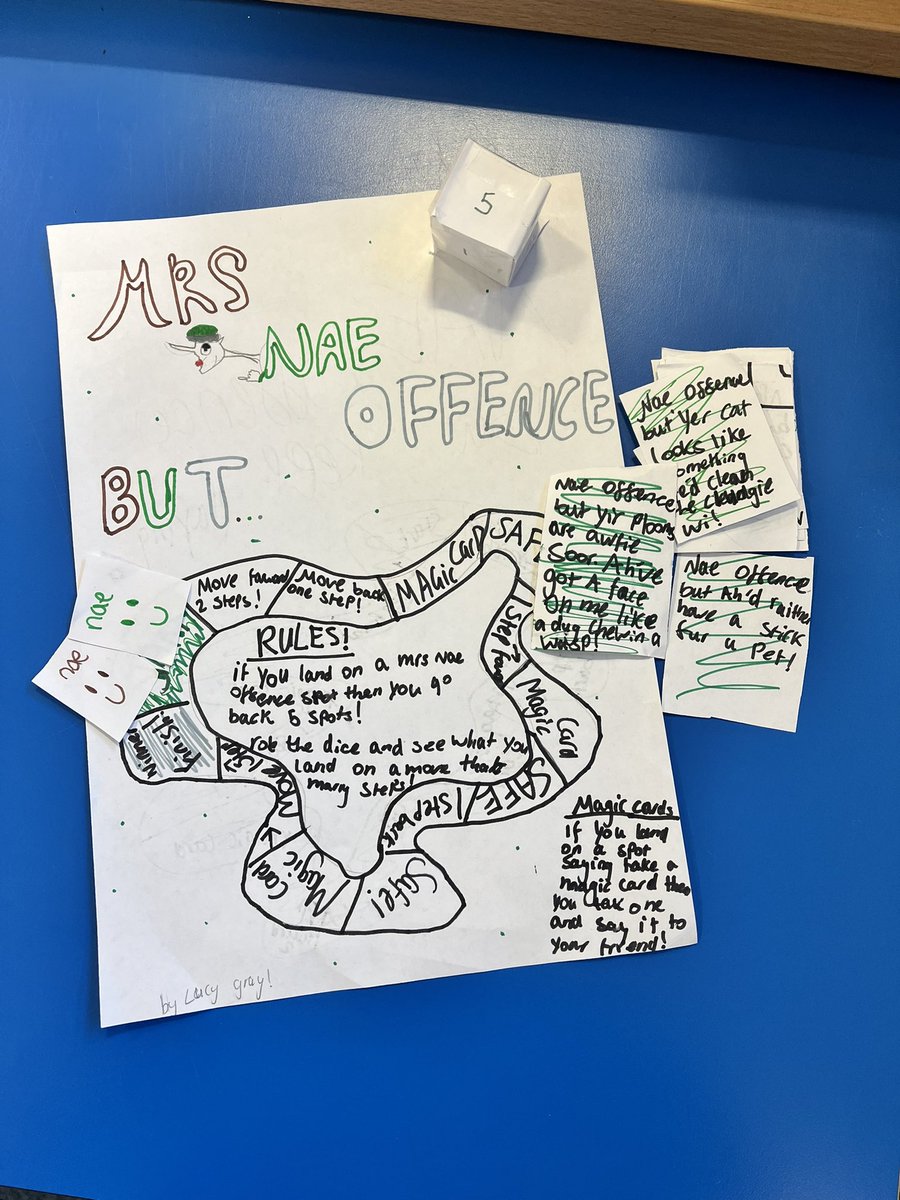 5
MRS
NAE
OFFENCE
BUT...
Nae offence
but yer cat
looks like
something
clean
wi!
Nae offence
but yir plooms
are awfie
Soor. Ah've
got A face
on me like
a dug chewin a
wasp!
Nae Offence
but Ah'd raither
have a Stick
fur a Pet!
nae
nae
Move forward
2 steps!
Move back
one step!
MAGIC CARD
SAF
1 Step
Magic Card
SAFE
1 Step back
Safe!
Magic Card
Move
Finish!
Winner
RULES!
if you land on a mrs Nae
offence spot then you go
back 5 spots!
role the dice and see what you
land on a move that
many steps!
Magic cards
If you land
on a spot
saying take a
magic card then
you tak one
and say it to
your friend!
by Lucy gray!